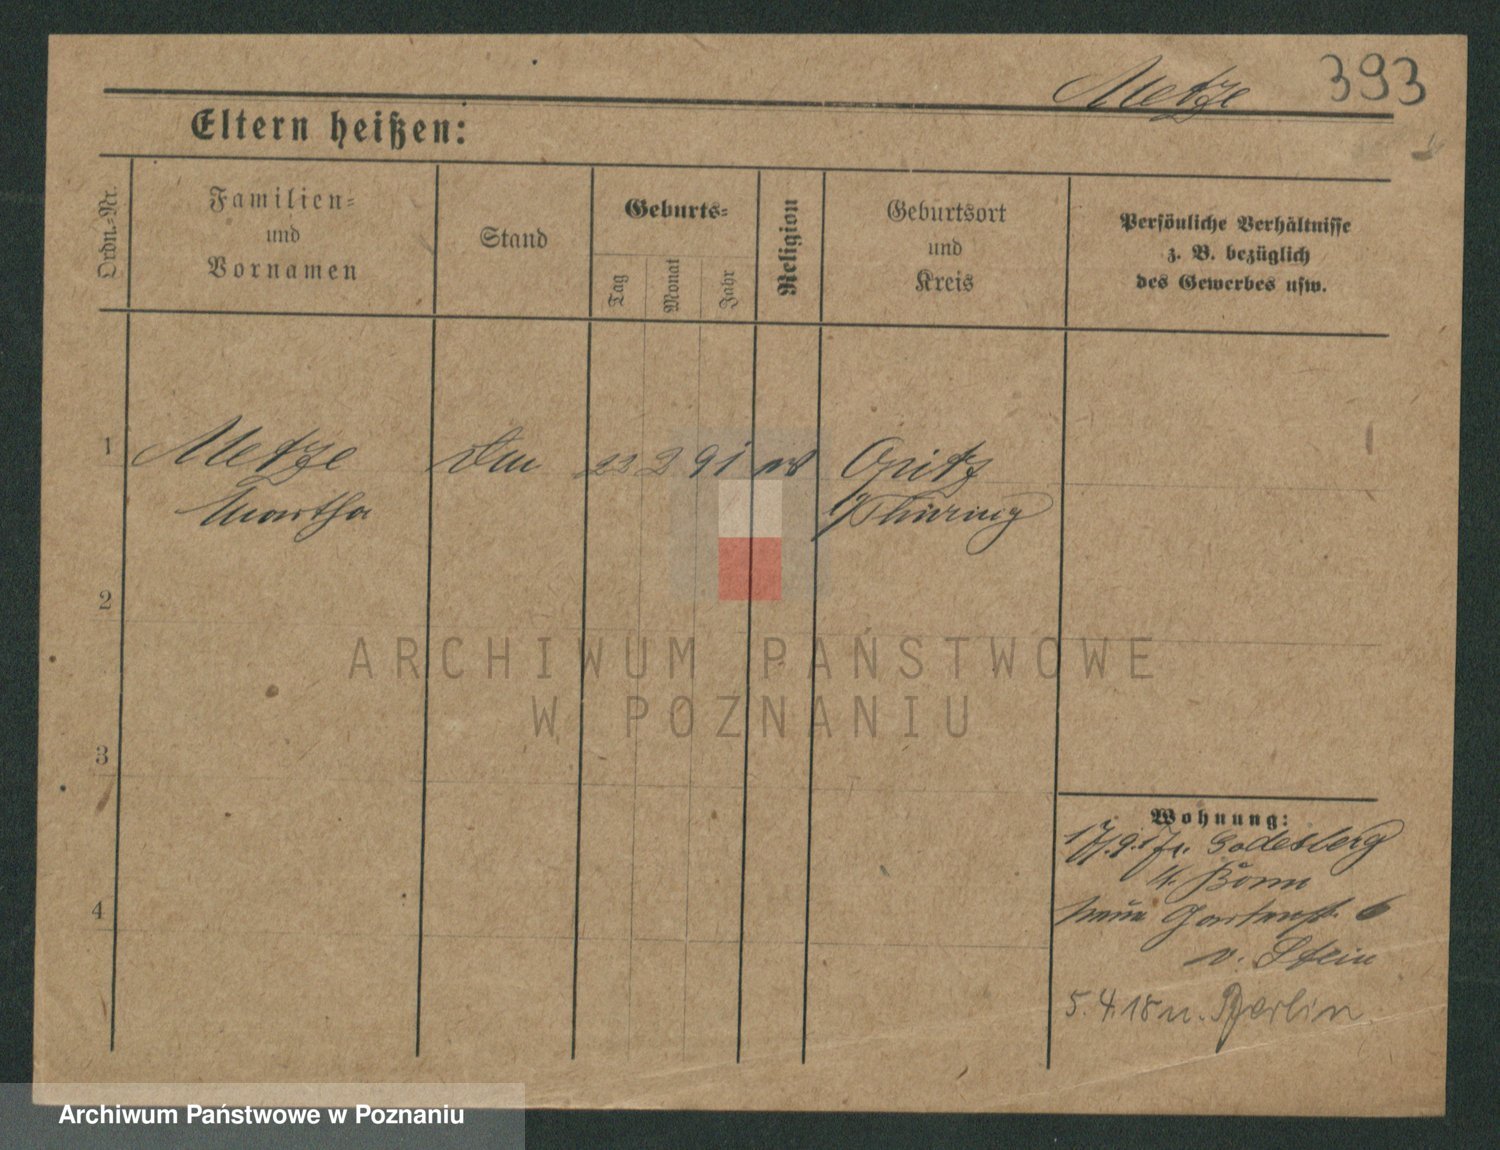 Metze 393
Eltern heißen:
Ordn.-Nr.
Familien-
und
Vornamen
Stand
Geburts-
Tag
Monat
Jahr
Religion
Geburtsort
und
Kreis
Persönliche Verhältnisse
z. B. bezüglich
des Gewerbes usw.
1 Metze 22 2 91 Opitz
Martha i/Thüring
2
3
4
Wohnung:
17.9.17 v. Godesberg
b. Bonn
6
v. Stein
5.4.18 n. Berlin
ARCHIWUM PAŃSTWOWE
W POZNANIU
Archiwum Państwowe w Poznaniu